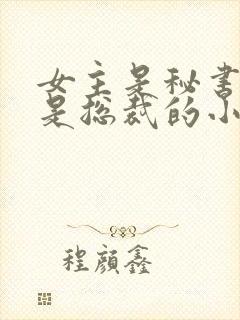 女主是秘书
是总裁的小
程颜鑫